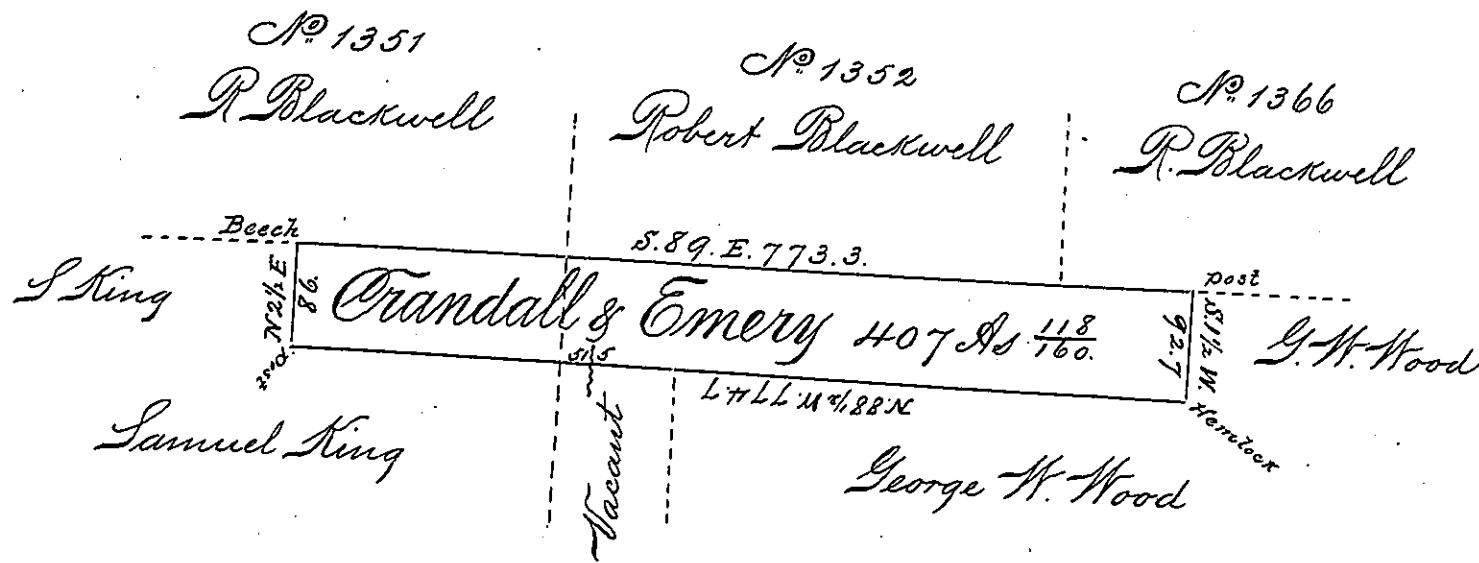 No 1351
R Blackwell
No 1352
Robert Blackwell
No. 1366
R. Blackwell
Beech
S. 89. E. 773.3.
post
S King
N 2 1/2 E
86.
Crandall & Emery 407 As 118/160.
S. 1 1/2 W.
92.7
G. W. Wood
Post
51 5
N. 88 1/2 W. 774.7
Hemlock
Samuel King
Vacant
George W. Wood